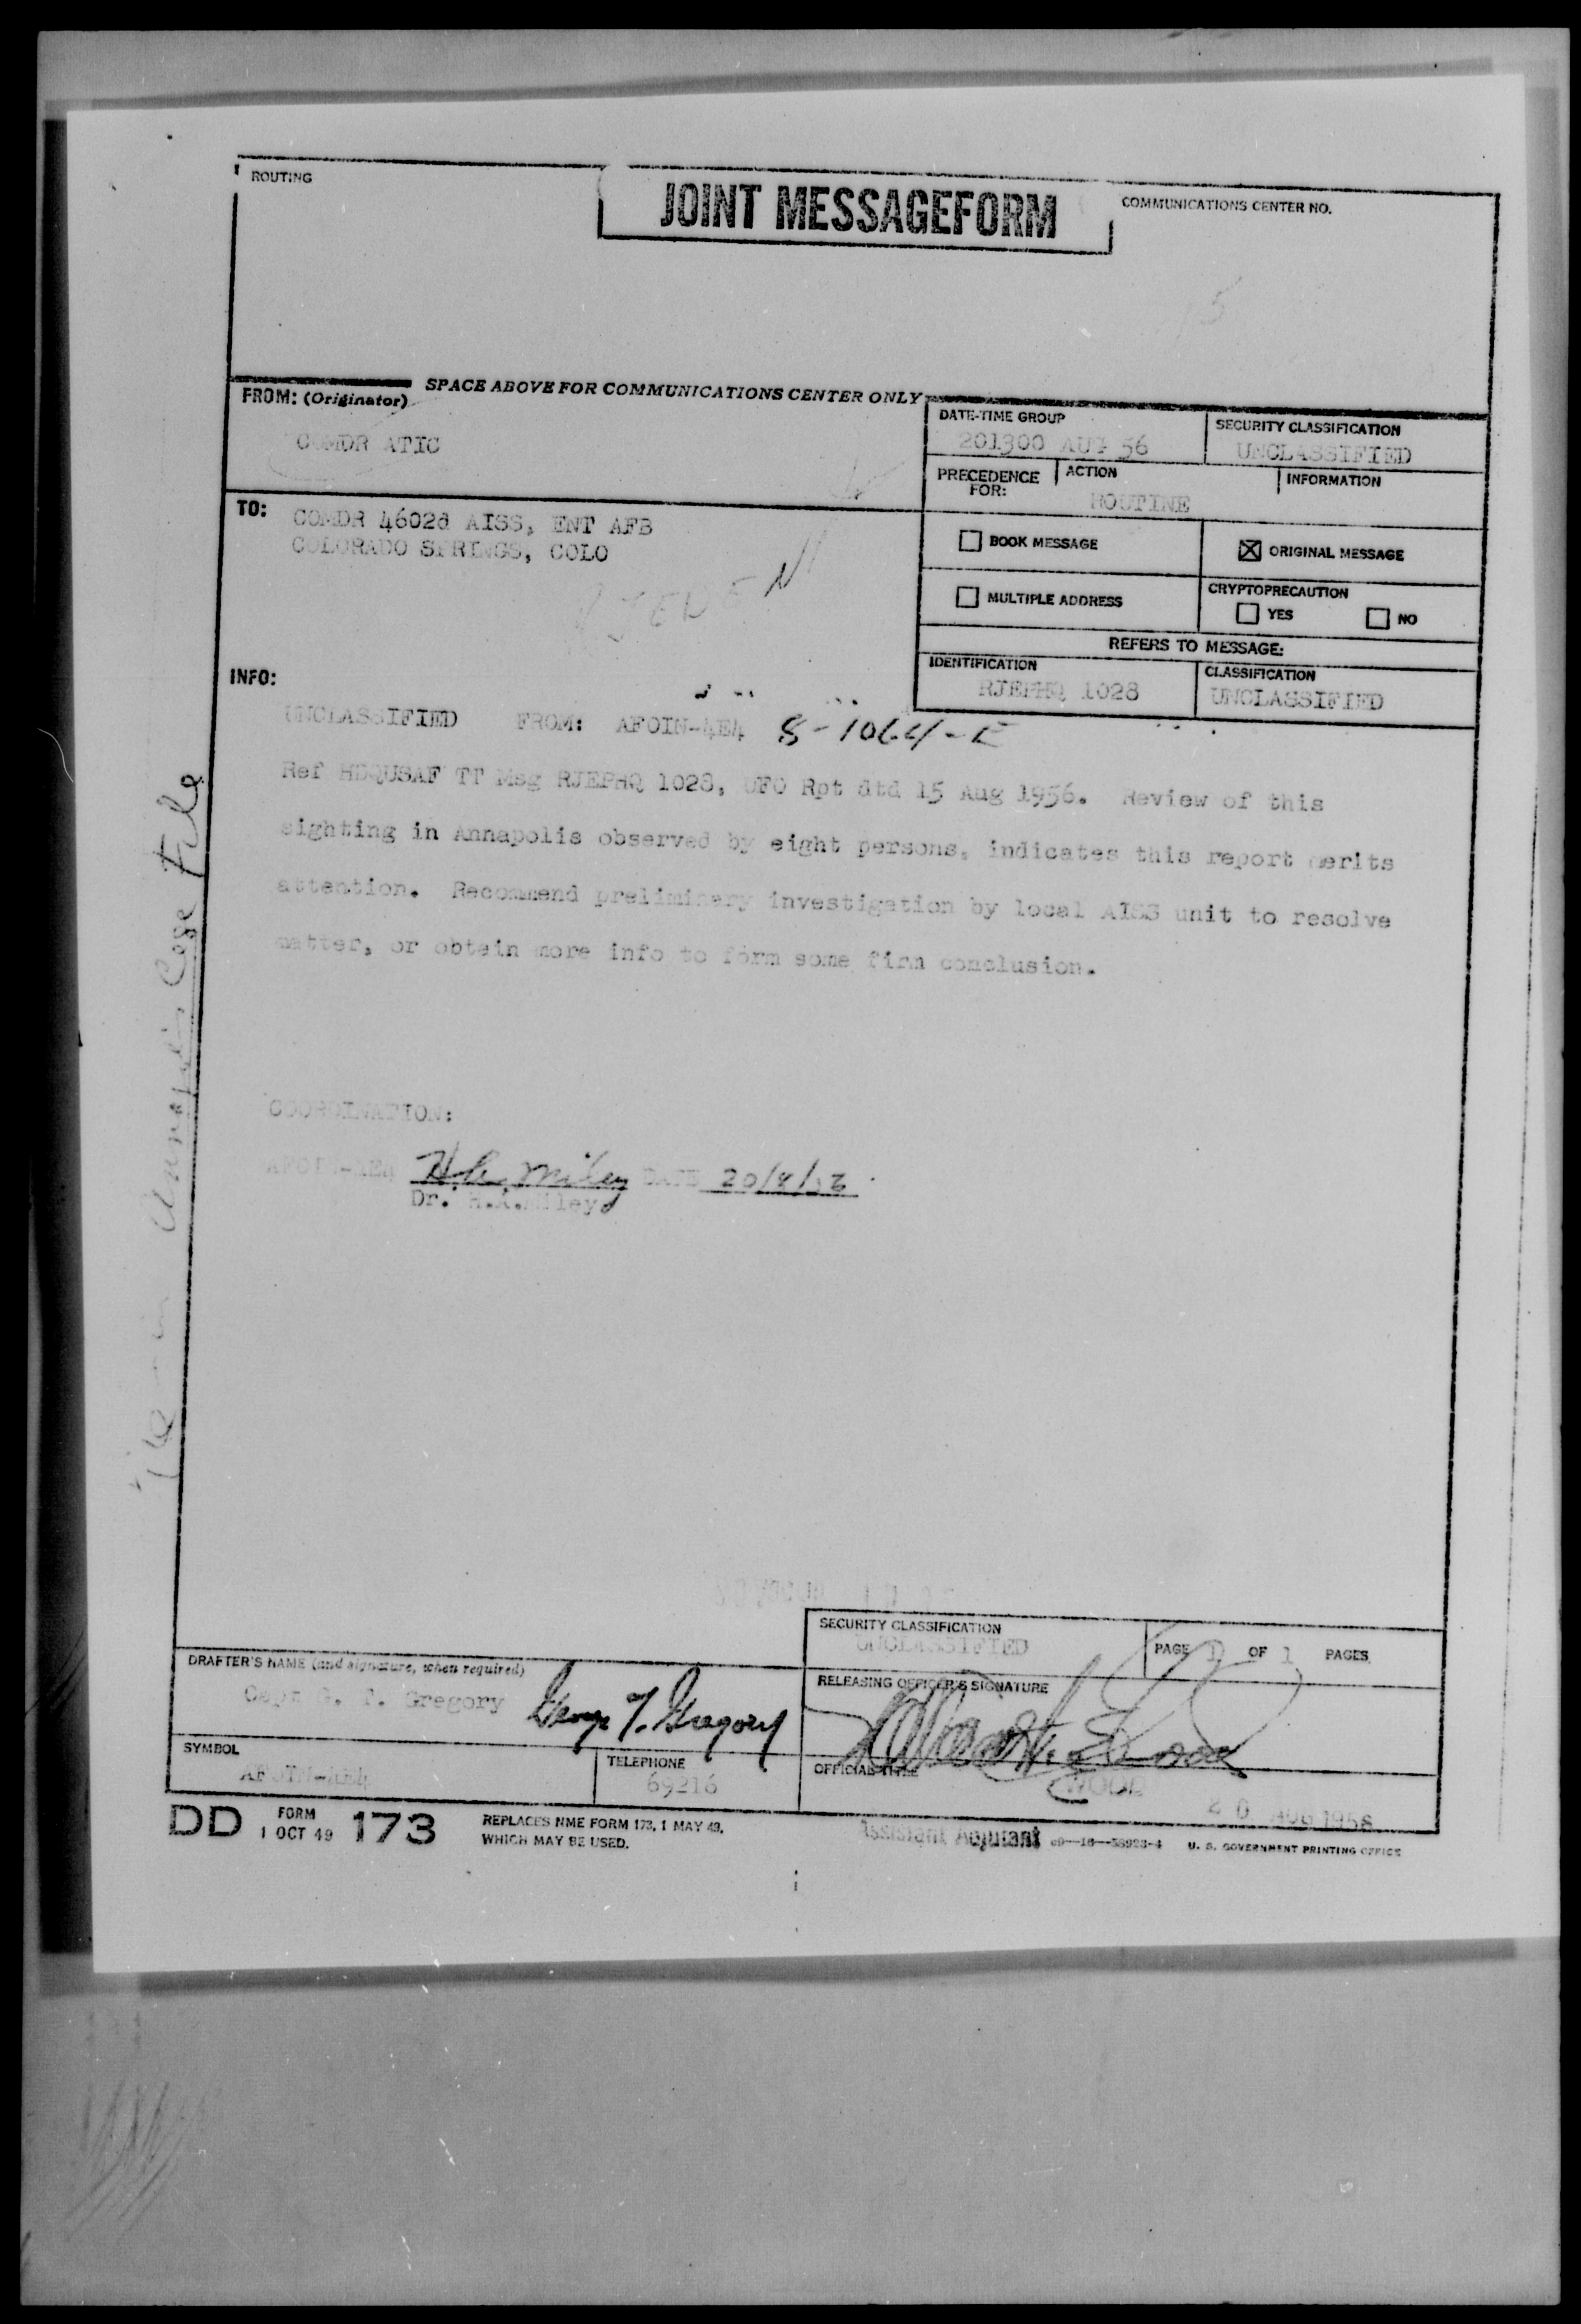 ROUTING
JOINT MESSAGEFORM
COMMUNICATIONS CENTER NO.
SPACE ABOVE FOR COMMUNICATIONS CENTER ONLY
FROM: (Originator)
COMDR ATIC
DATE-TIME GROUP
201300 AUG 56
SECURITY CLASSIFICATION
UNCLASSIFIED
PRECEDENCE FOR:
ACTION
ROUTINE
INFORMATION
TO:
COMDR 4602d AISS, ENT AFB
COLORADO SPRINGS, COLO
BOOK MESSAGE
ORIGINAL MESSAGE
MULTIPLE ADDRESS
CRYPTOPRECAUTION
YES
NO
REFERS TO MESSAGE:
IDENTIFICATION
RJEPHQ 1028
CLASSIFICATION
UNCLASSIFIED
RJEDEN
INFO:
UNCLASSIFIED FROM: AFOIN-4E4 8-1064-E
Ref HDQUSAF TT Msg RJEPHQ 1028, UFO Rpt dtd 15 Aug 1956. Review of this
sighting in Annapolis observed by eight persons, indicates this report merits
attention. Recommend preliminary investigation by local AISS unit to resolve
matter, or obtain more info to form some firm conclusion.
COORDINATION:
AFOIN-4E4 H.K. Miley DATE 20/8/56
Dr. H.K. Miley
Annapolis Case File
SECURITY CLASSIFICATION
UNCLASSIFIED
PAGE 1 OF 1 PAGES
DRAFTER'S NAME (and signature, when required)
Capt G. T. Gregory George T. Gregory
RELEASING OFFICER'S SIGNATURE
SYMBOL
AFOIN-4E4
TELEPHONE
69216
OFFICIAL TITLE
WOOD
20 AUG 1956
Assistant Adjutant
DD FORM 1 OCT 49 173
REPLACES NME FORM 173, 1 MAY 49,
WHICH MAY BE USED.
U. S. GOVERNMENT PRINTING OFFICE